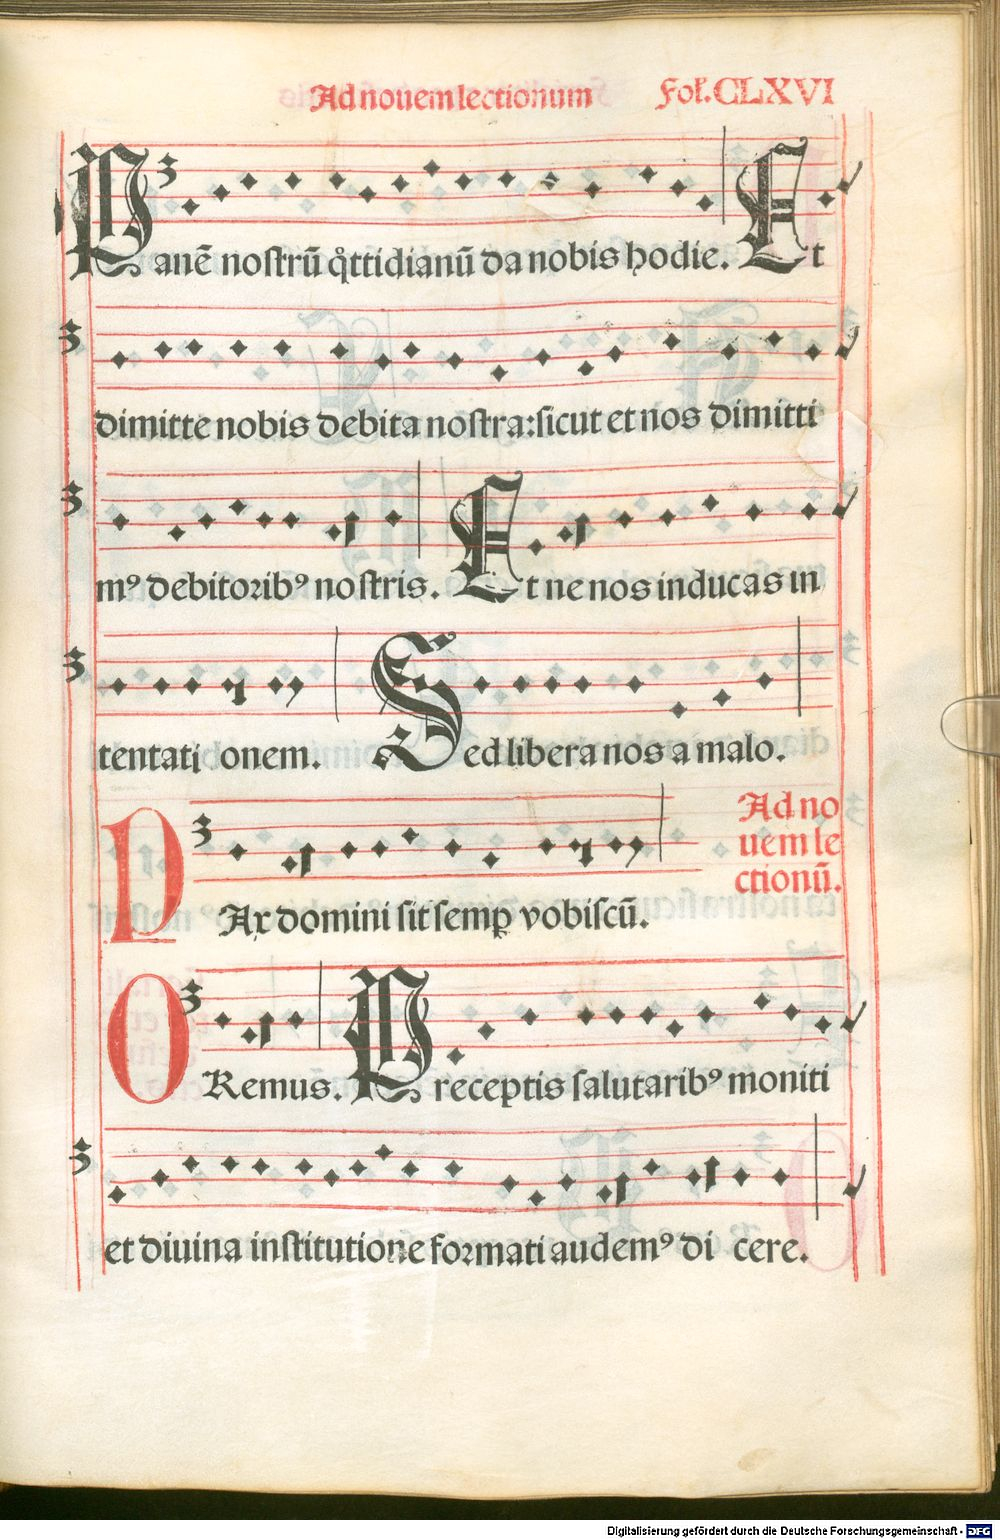 Ad nouem lectionum Fol. CLXVI
Panē nostrū q̊ttidianū da nobis hodie. Et
dimitte nobis debita nostra: sicut et nos dimitti
mꝰ debitoribꝰ nostris. Et ne nos inducas in
tentati onem. Sed libera nos a malo.
PAx domini sit semꝑ vobiscū. Ad no
uem le
ctionū.
ORemus. Preceptis salutaribꝰ moniti
et diuina institutione formati audemꝰ di cere.
Digitalisierung gefördert durch die Deutsche Forschungsgemeinschaft - DFG